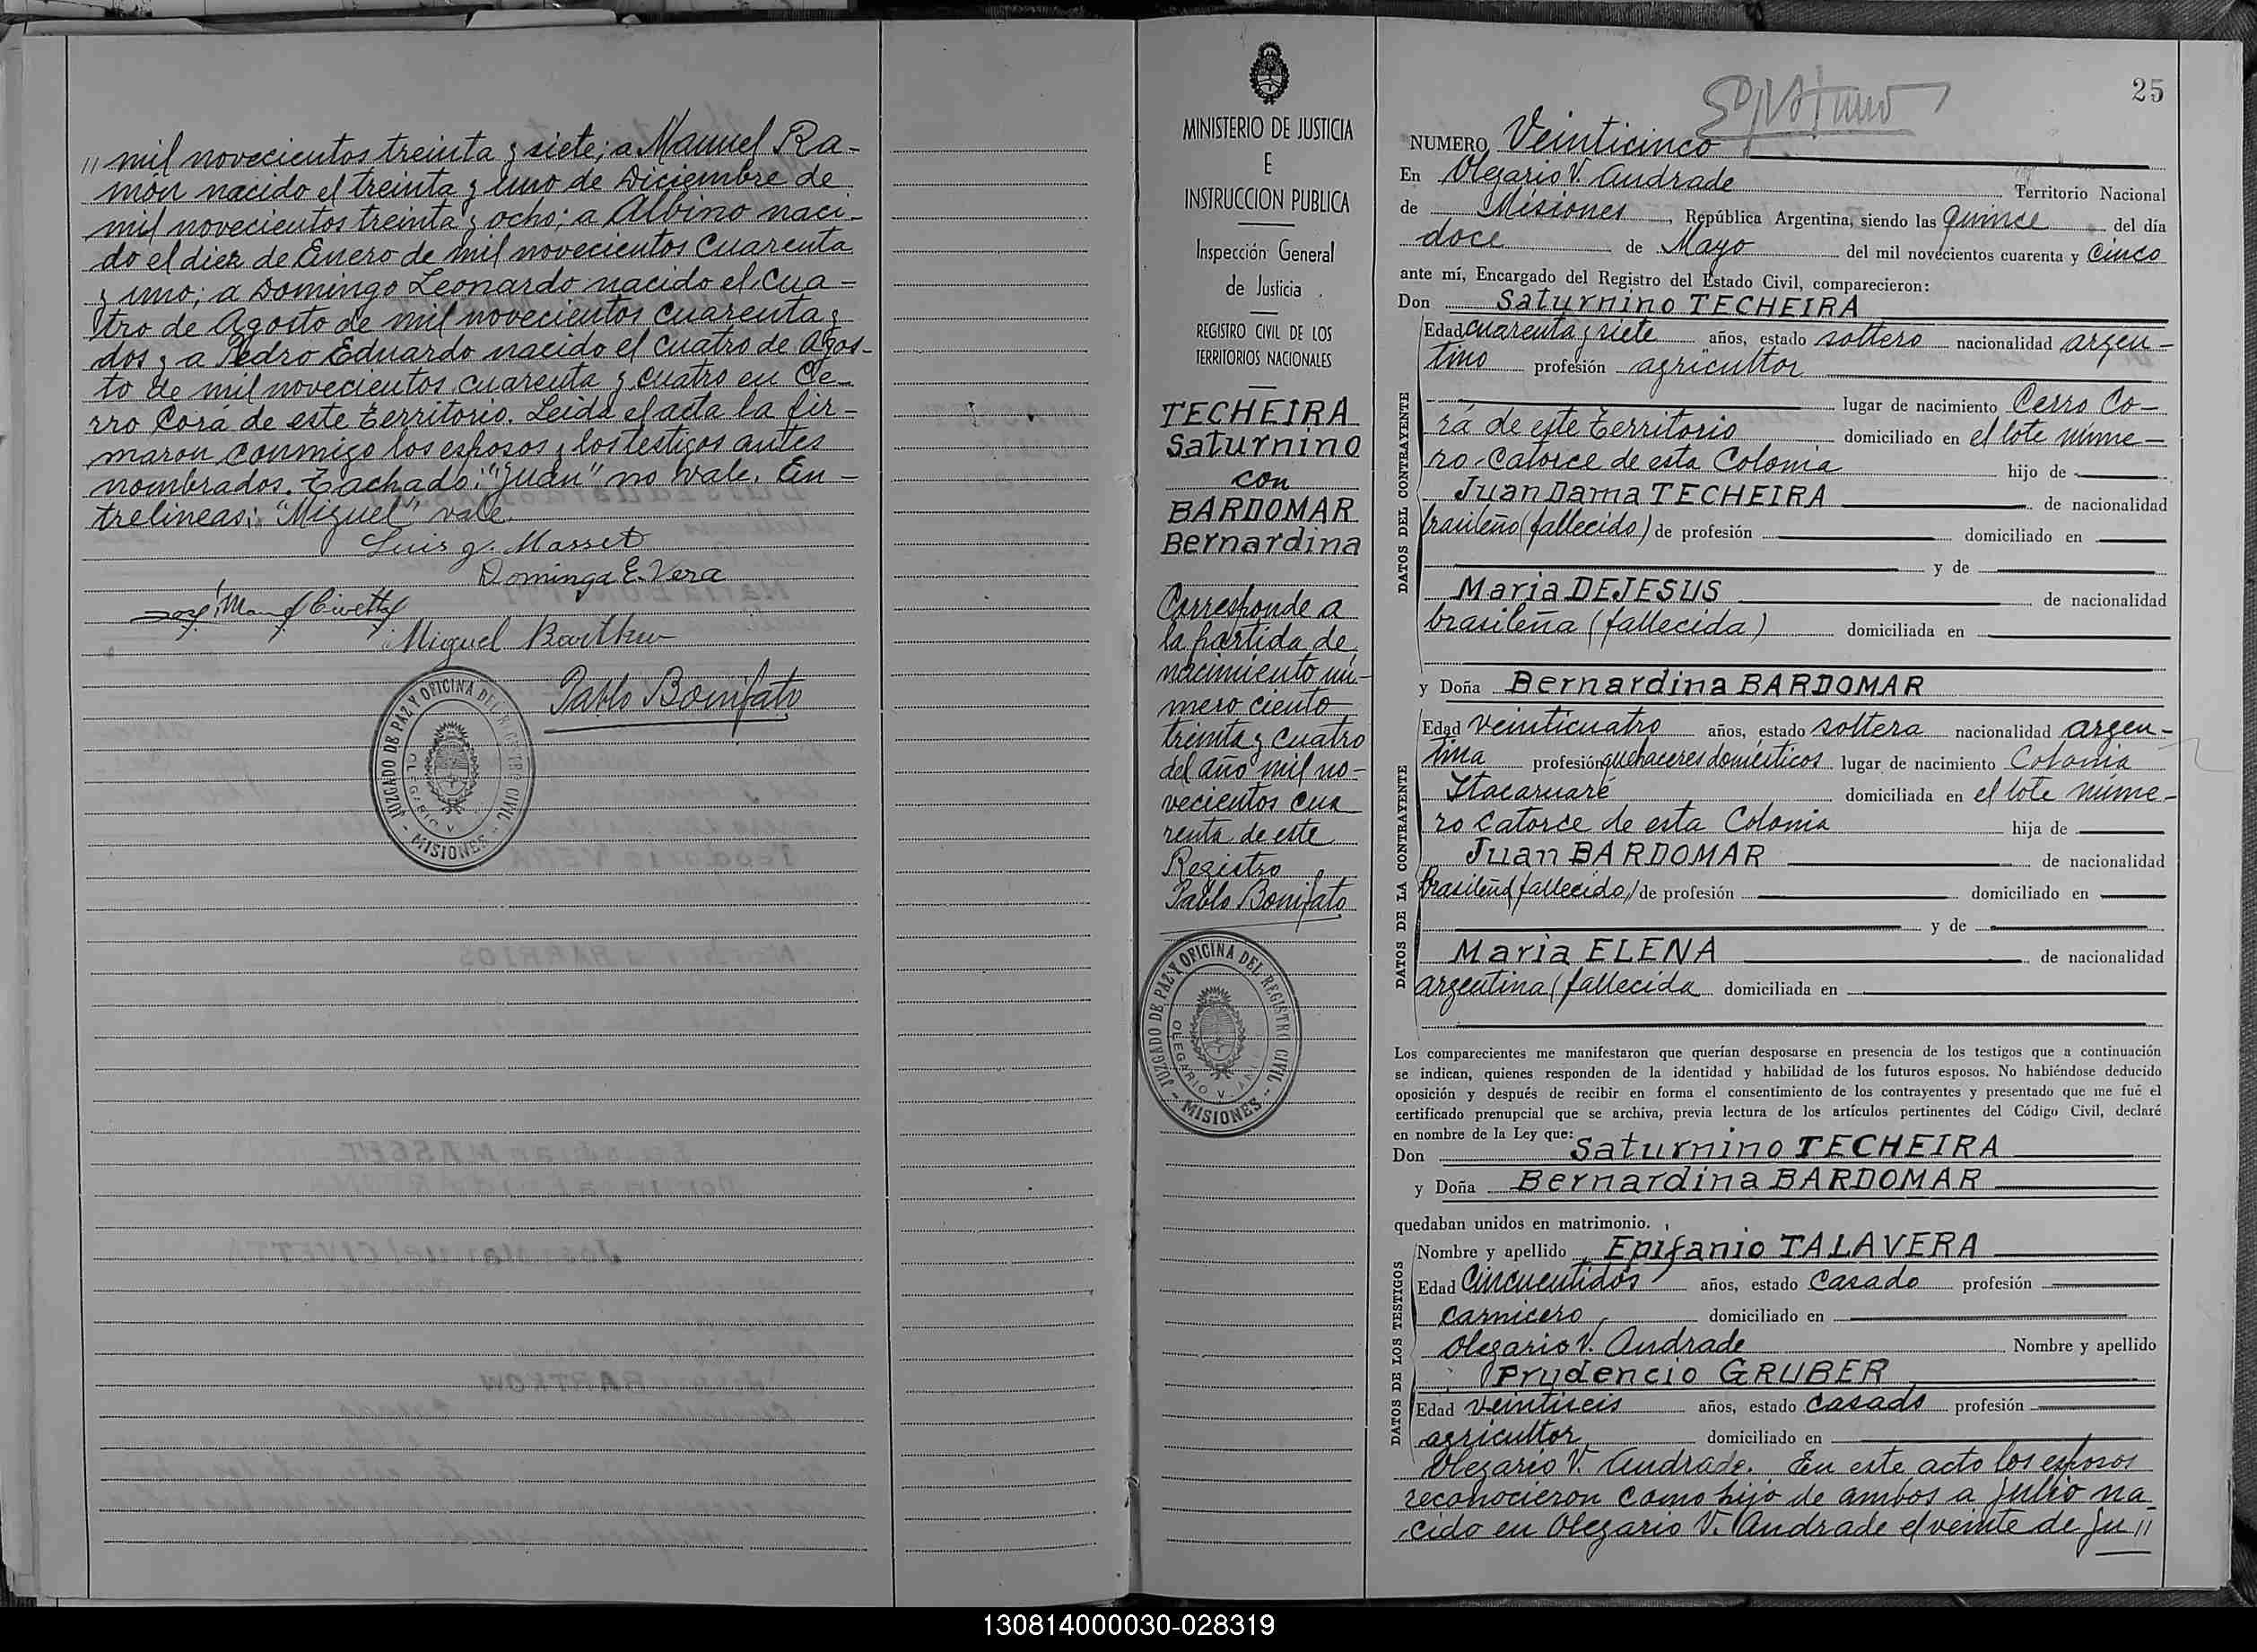 " mil novecientos treinta y siete; a Manuel Ra-
món nacido el treinta y uno de Diciembre de
mil novecientos treinta y ocho; a Albino naci-
do el diez de Enero de mil novecientos cuarenta
y uno; a Domingo Leonardo nacido el cua-
tro de Agosto de mil novecientos cuarenta y
dos y a Pedro Eduardo nacido el cuatro de Agos-
to de mil novecientos cuarenta y cuatro en Ce-
rro Corá de este territorio. Leida el acta la fir-
maron conmigo los esposos y los testigos antes
nombrados. Tachado: "Juan" no vale. En-
trelineas: "Miguel" vale.
Luis g. Masset
Dominga E. Vera
José Man Civetta
Miguel Bartkw
Pablo Bonifato
JUZGADO DE PAZ Y OFICINA DEL REGISTRO CIVIL
OLEGARIO V.
- MISIONES -
MINISTERIO DE JUSTICIA
E
INSTRUCCION PUBLICA
Inspección General
de Justicia
REGISTRO CIVIL DE LOS
TERRITORIOS NACIONALES
TECHEIRA
Saturnino
con
BARDOMAR
Bernardina
Corresponde a
la partida de
nacimiento nú-
mero ciento
treinta y cuatro
del año mil no-
vecientos cua
renta de este
Registro
Pablo Bonifato
JUZGADO DE PAZ Y OFICINA DEL REGISTRO CIVIL
OLEGARIO V. AN
- MISIONES -
25
NUMERO Veinticinco
En Olegario V. Andrade Territorio Nacional
de Misiones, República Argentina, siendo las quince del día
doce de Mayo del mil novecientos cuarenta y Cinco
ante mí, Encargado del Registro del Estado Civil, comparecieron:
Don Saturnino TECHEIRA
DATOS DEL CONTRAYENTE
Edad cuarenta y siete años, estado soltero nacionalidad argen-
tino profesión agricultor
lugar de nacimiento Cerro Co-
rá de este territorio domiciliado en el lote núme-
ro Catorce de esta Colonia hijo de
Juan Dama TECHEIRA de nacionalidad
brasileño (fallecido) de profesión domiciliado en
y de
Maria DEJESUS de nacionalidad
brasileña (fallecida) domiciliada en
y Doña Bernardina BARDOMAR
DATOS DE LA CONTRAYENTE
Edad veinticuatro años, estado soltera nacionalidad argen-
tina profesión quehaceres domésticos lugar de nacimiento Colonia
Itacaruaré domiciliada en el lote núme-
ro catorce de esta Colonia hija de
Juan BARDOMAR de nacionalidad
brasileño (fallecido) de profesión domiciliado en
y de
Maria ELENA de nacionalidad
argentina (fallecida domiciliada en
Los comparecientes me manifestaron que querían desposarse en presencia de los testigos que a continuación
se indican, quienes responden de la identidad y habilidad de los futuros esposos. No habiéndose deducido
oposición y después de recibir en forma el consentimiento de los contrayentes y presentado que me fué el
certificado prenupcial que se archiva, previa lectura de los artículos pertinentes del Código Civil, declaré
en nombre de la Ley que:
Don Saturnino TECHEIRA
y Doña Bernardina BARDOMAR
quedaban unidos en matrimonio.
DATOS DE LOS TESTIGOS
Nombre y apellido Epifanio TALAVERA
Edad Cincuentidós años, estado Casado profesión
carnicero domiciliado en
Olegario V. Andrade Nombre y apellido
Prudencio GRUBER
Edad veintiseis años, estado casado profesión
agricultor domiciliado en
Olegario V. Andrade. En este acto los esposos
reconocieron como hijo de ambos a Julio na-
cido en Olegario V. Andrade el veinte de Ju "
130814000030-028319